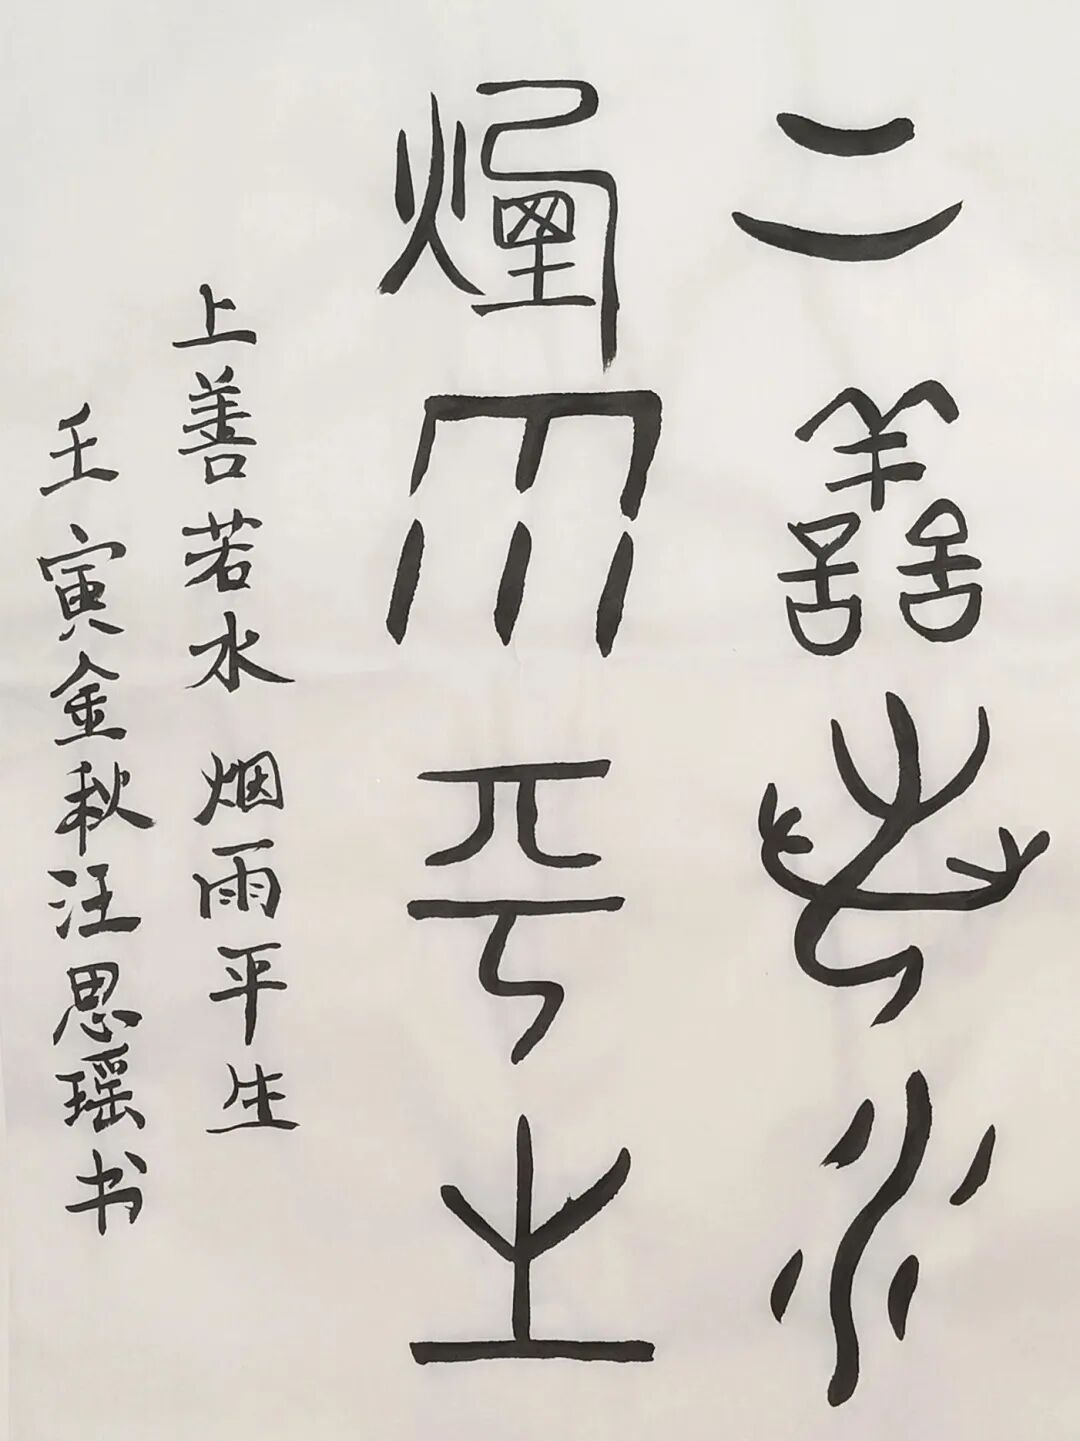 上善若水
烟雨平生
上善若水 烟雨平生
壬寅金秋汪思瑶书